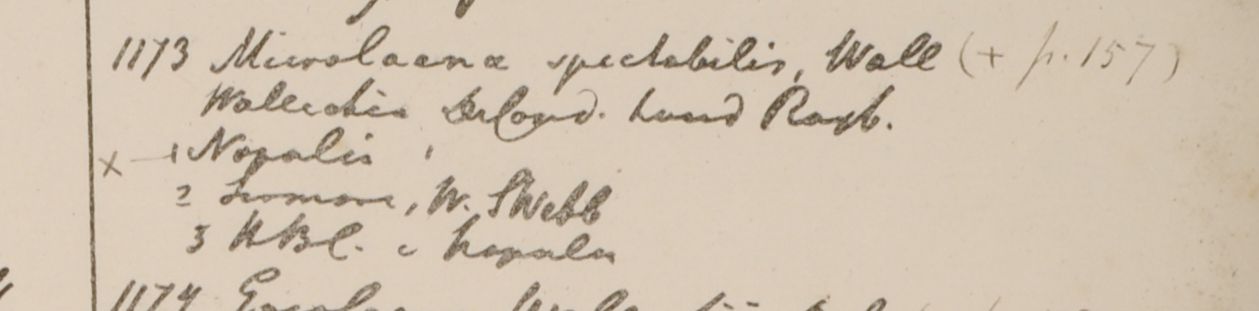 1173 Microlaena spectabilis, Wall (+ p. 157)
Wallichia, DeCand. haud Roxb.
x 1 Napalia
2 W. S Webb
3 HBC. e Napalia
1174 Wall